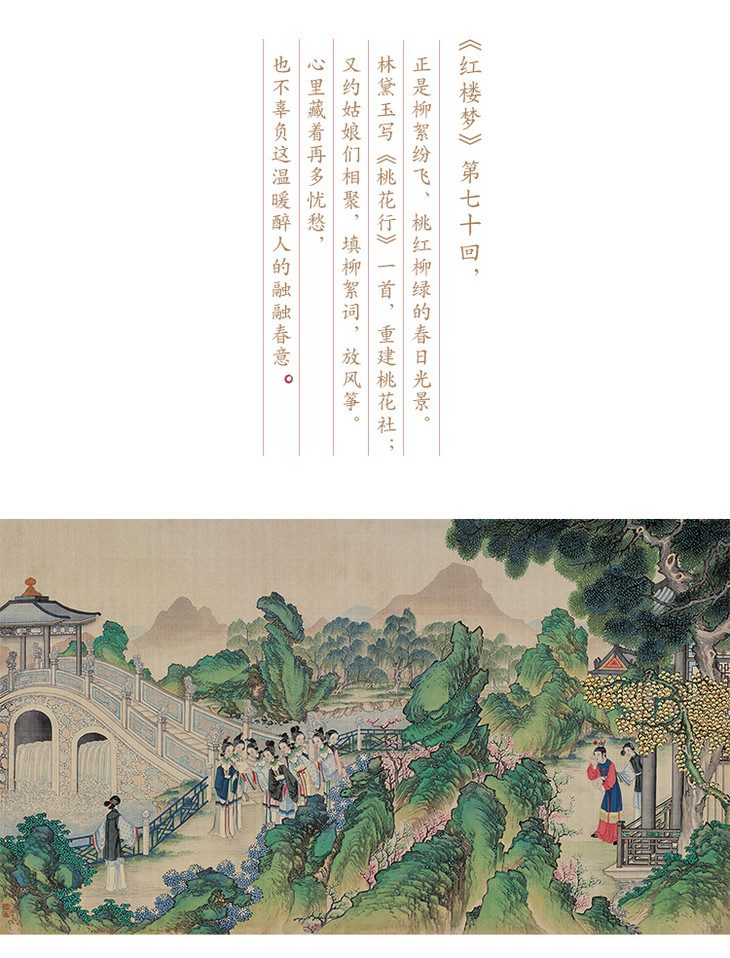 《红楼梦》第七十回，
正是柳絮纷飞、桃红柳绿的春日光景。
林黛玉写《桃花行》一首，重建桃花社；
又约姑娘们相聚，填柳絮词，放风筝。
心里藏着再多忧愁，
也不辜负这温暖醉人的融融春意。